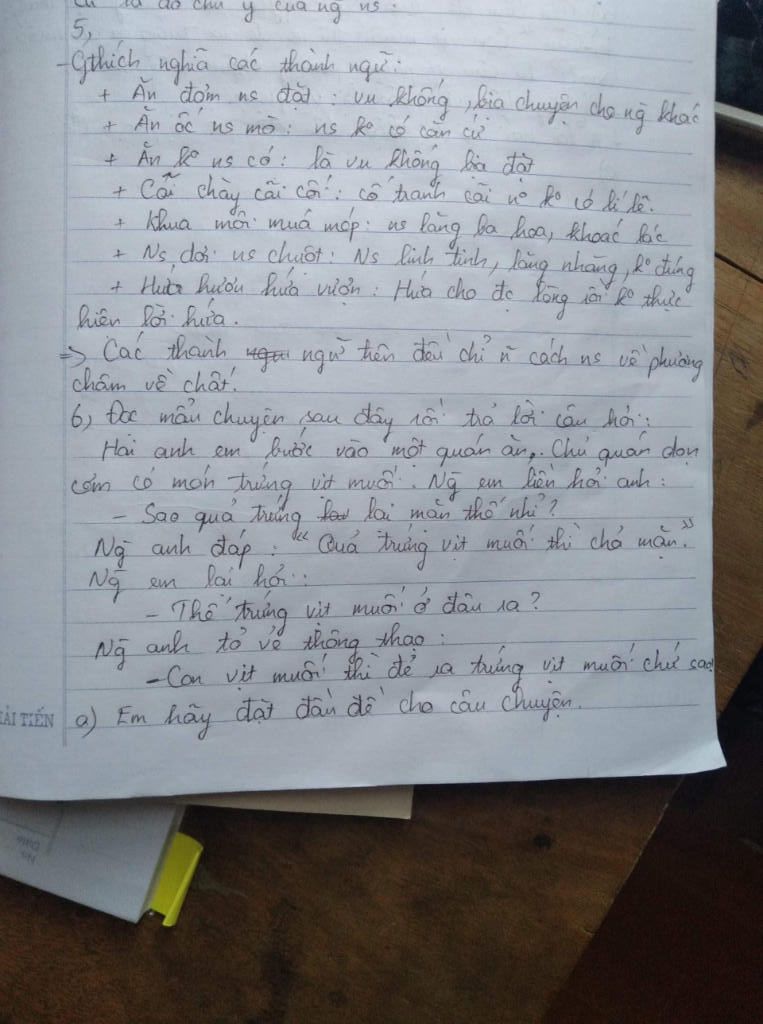 5,
- Gthích nghĩa các thành ngữ:
+ Ăn đơm ns đặt: vu khống, bịa chuyện cho ng̃ khác
+ Ăn ốc ns mò: ns ko có căn cứ
+ Ăn ko ns có: là vu khống bịa đặt
+ Cãi chày cãi cối: cố tranh cãi nº ko có lí lẽ.
+ Khua môi múa mép: ns lăng ba hoa, khoác lác
+ Ns dơi ns chuột: Ns linh tinh, lăng nhăng, ko đúng
+ Hứa hươu hứa vượn: Hứa cho đc lòng rồi ko thực
hiện lời hứa.
=> Các thành ngữ trên đều chỉ ñ cách ns về phương
châm về chất.
6, Đọc mẩu chuyện sau đây rồi trả lời câu hỏi:
Hai anh em bước vào một quán ăn. Chủ quán dọn
cơm có món trứng vịt muối. Ng̃ em liền hỏi anh:
- Sao quả trứng lại mặn thế nhỉ?
Ng̃ anh đáp: "Quả trứng vịt muối thì chả mặn."
Ng̃ em lại hỏi:
- Thế trứng vịt muối ở đâu ra?
Ng̃ anh tỏ vẻ thông thạo:
- Con vịt muối thì đẻ ra trứng vịt muối chứ sao
ẢI TIẾN
a) Em hãy đặt đầu đề cho câu chuyện.